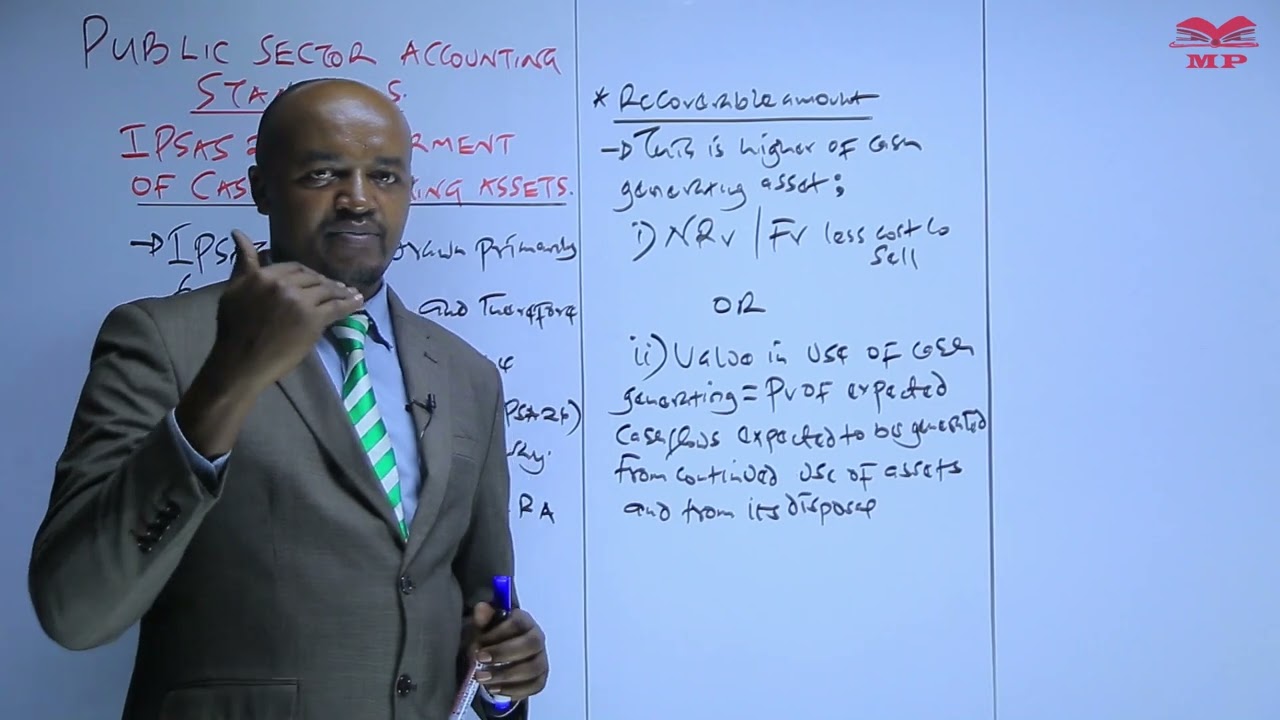 PUBLIC SECTOR ACCOUNTING
STA S.
IPSAS 2 RMENT
OF CAS ING ASSETS.
→ IPSA drawn primarily
and therefore
PSA26)
RA
* Recoverable amount
→ This is higher of cash
generating asset;
i) NRV | FV less cost to
sell
OR
ii) Value in use of cash
generating = PV of expected
Cashflows expected to be generated
from continued use of assets
and from its disposal
MP